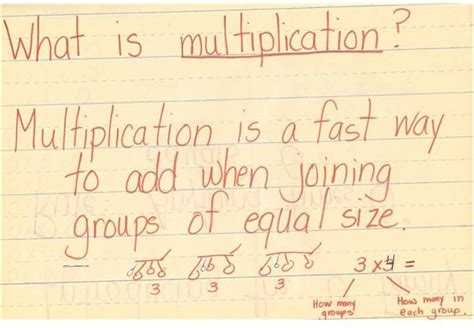 What is multiplication?
Multiplication is a fast way
to add when joining
groups of equal size.
3 3 3
3 x 4 =
How many
groups
How many in
each group.